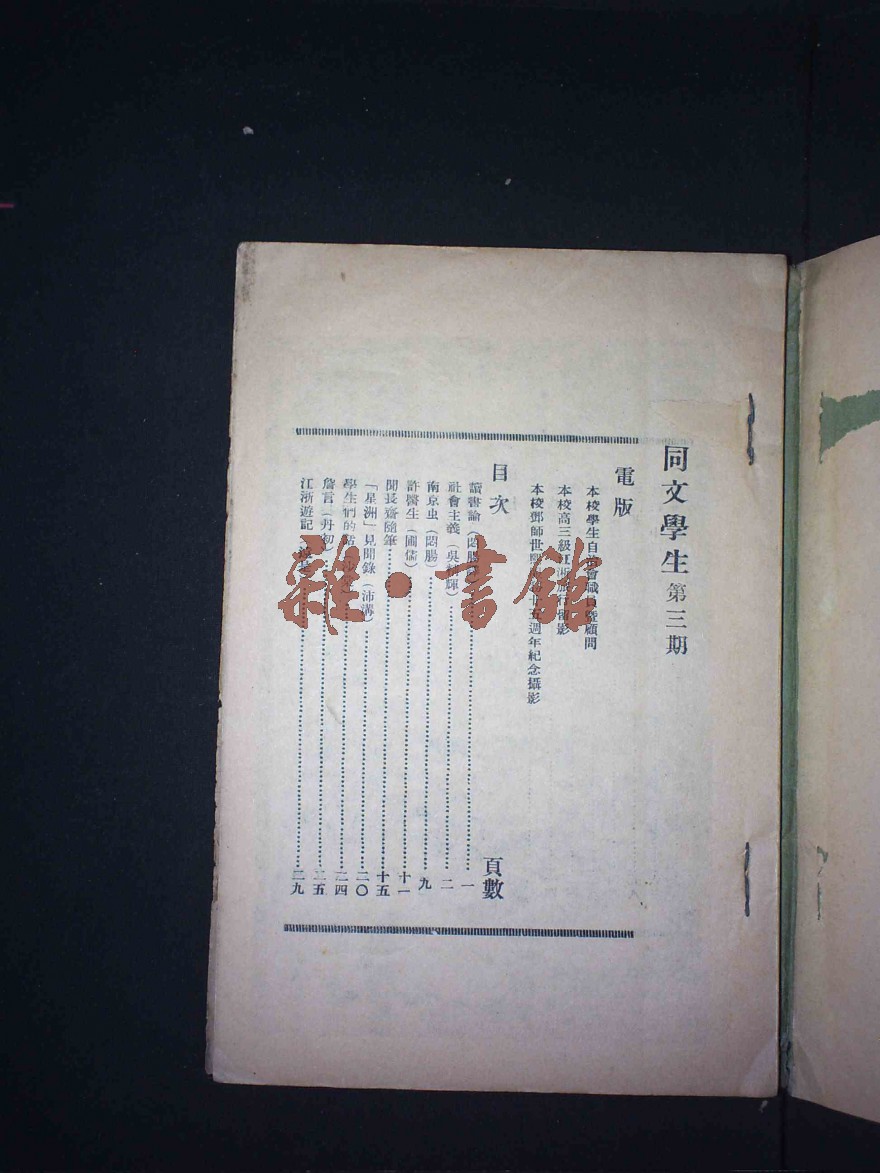 同文學生 第三期
電版
本校學生自治會職員暨顧問
本校高三級江浙旅行留影
本校鄧師世熙服務廿五週年紀念攝影
目次 頁數
讀書論(悶腸 一
社會主義(吳 輝) 二
南京虫(悶腸) 九
許醫生(圃儒) 十一
閒長齋隨筆 十五
「星洲」見聞錄(沛溝) 二〇
學生們的 二四
詹言(丹初) 二五
江浙遊記 二九
雜·書館